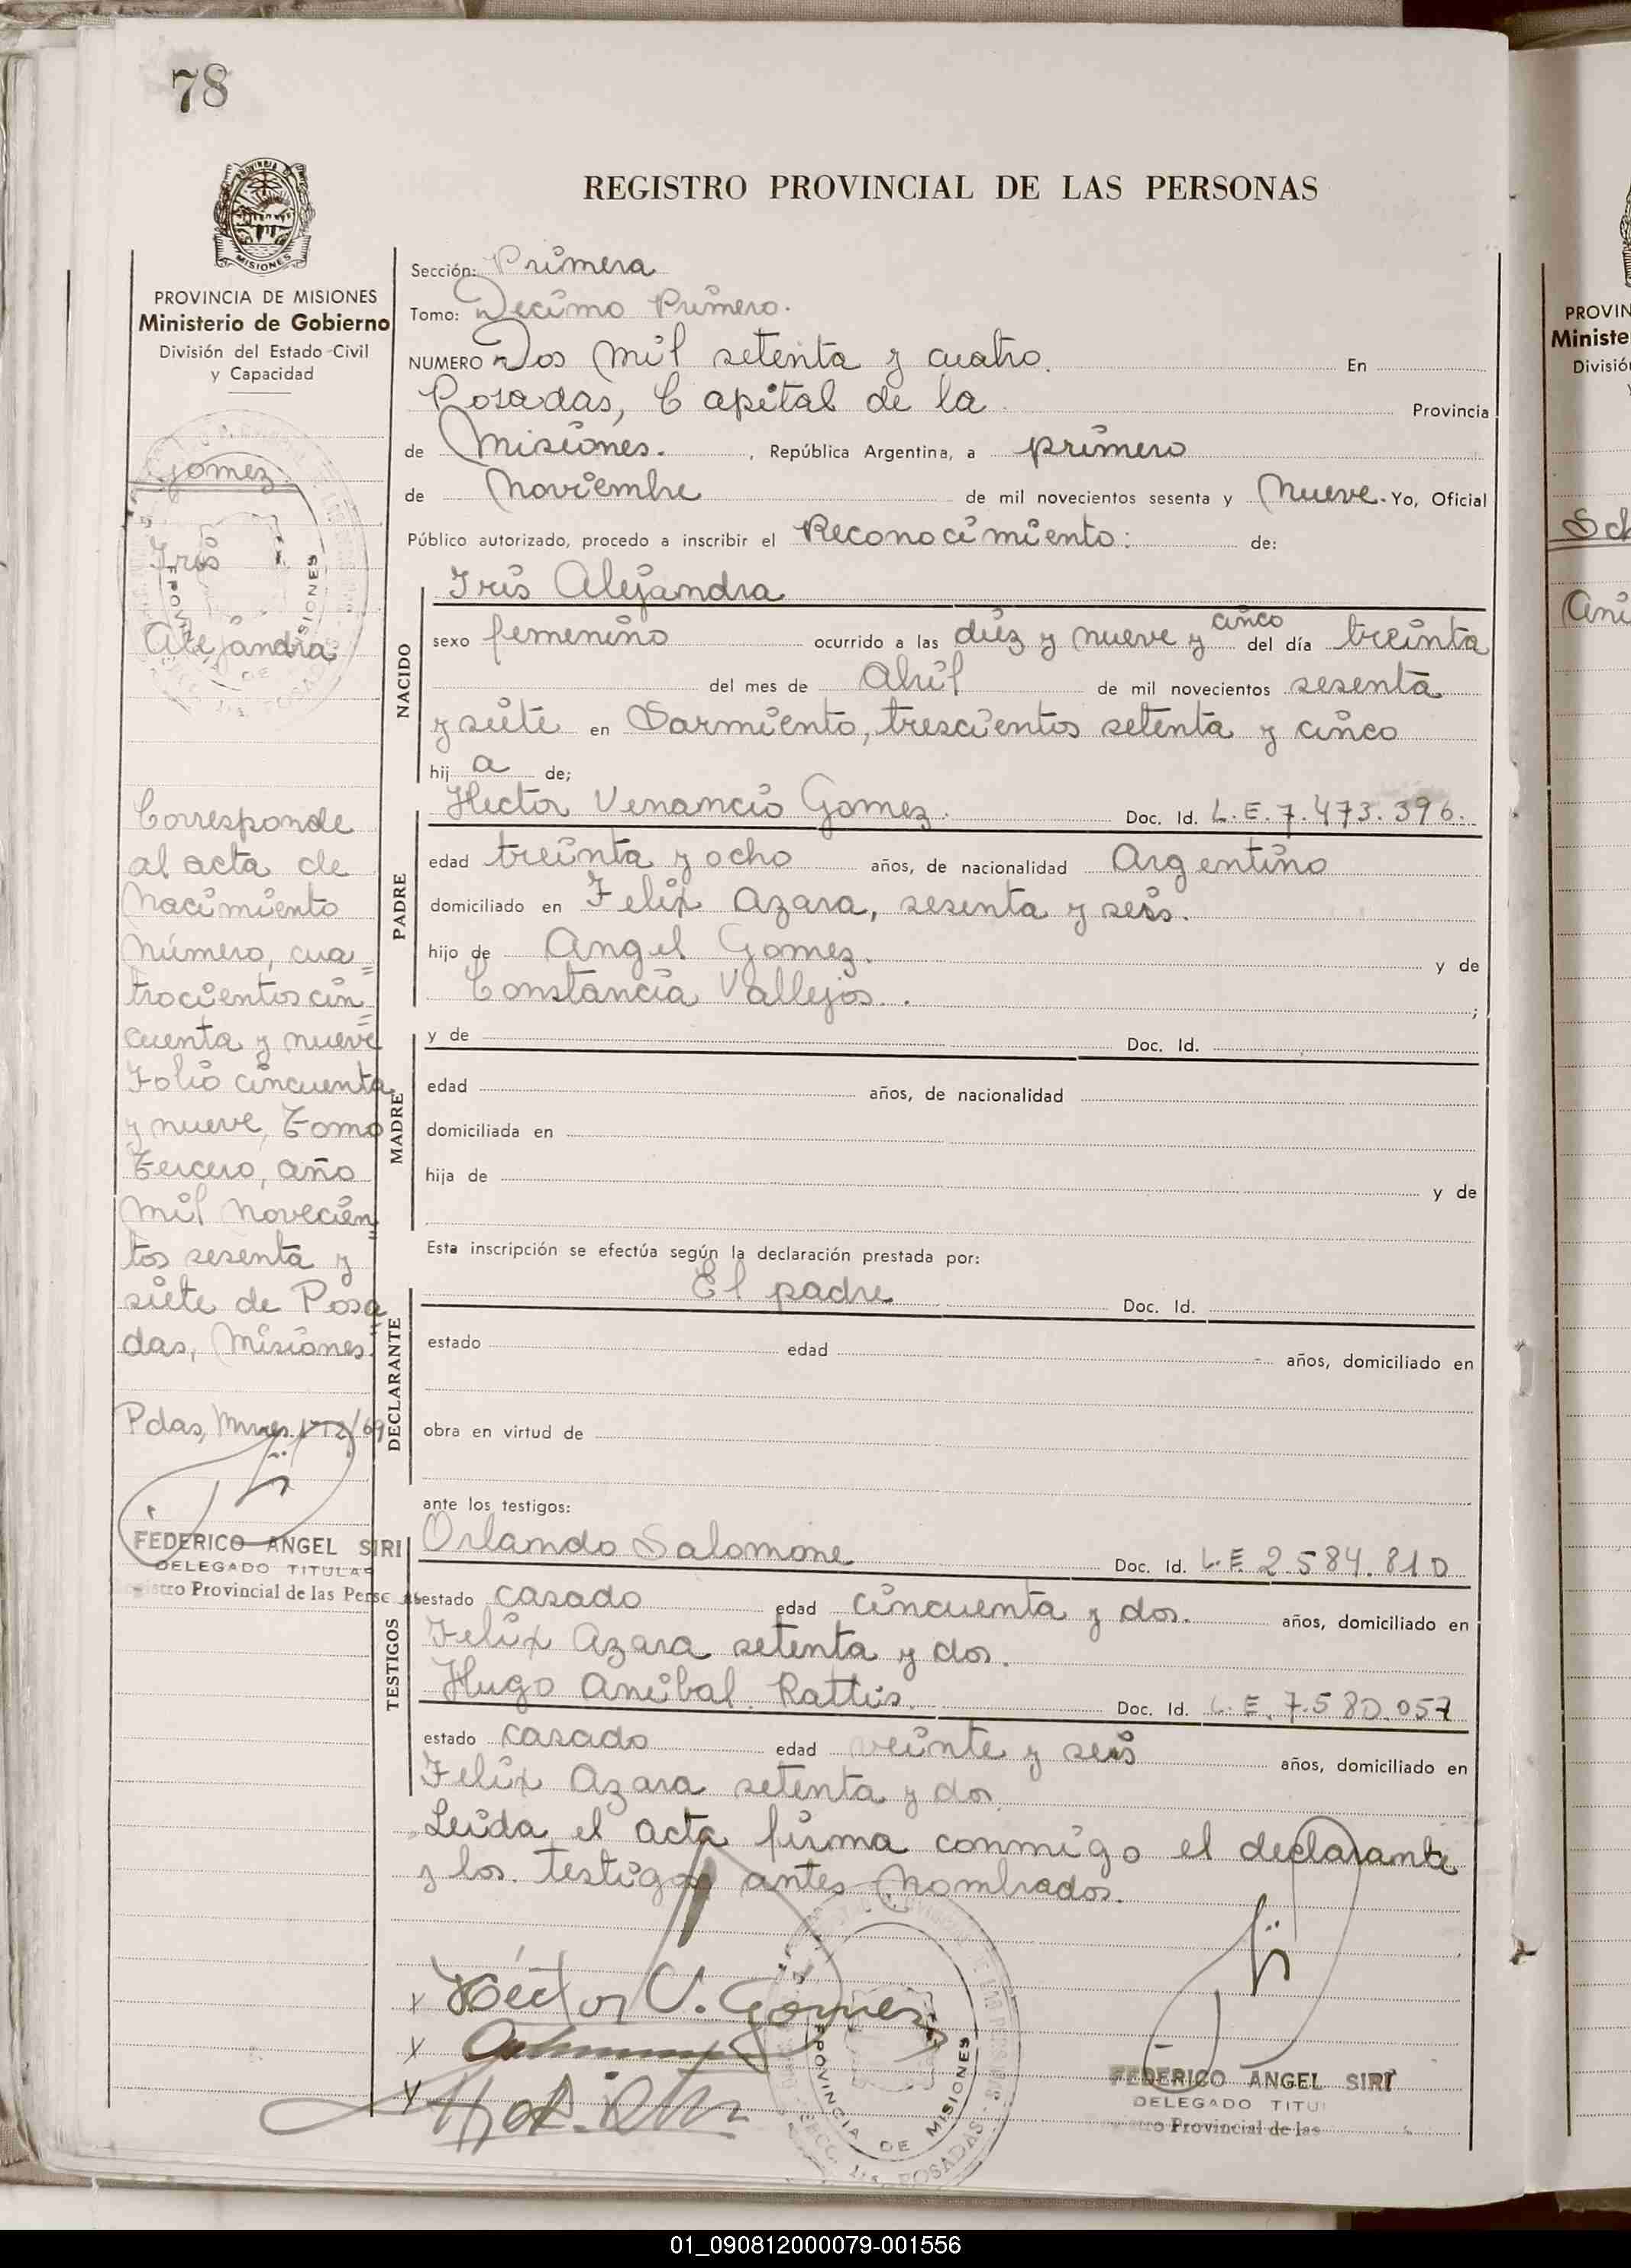 78
REGISTRO PROVINCIAL DE LAS PERSONAS
MISIONES
PROVINCIA DE MISIONES
Ministerio de Gobierno
División del Estado Civil
y Capacidad
Gomez
Iris
Alejandra
Corresponde
al acta de
Nacimiento
número, cua=
trocientos cin=
cuenta y nueve
Folio cincuenta
y nueve, Tomo
Tercero, año
mil novecien=
tos sesenta y
siete de Posa=
das, Misiones.
Pdas, Mnes.
FEDERICO ANGEL SIRI
DELEGADO TITULAR
Provincial de las
Sección: Primera
Tomo: Decimo Primero.
NUMERO Dos mil setenta y cuatro. En
Posadas, Capital de la Provincia
de Misiones. , República Argentina, a primero
de Noviembre de mil novecientos sesenta y Nueve. Yo, Oficial
Público autorizado, procedo a inscribir el Reconocimiento: de:
NACIDO
Iris Alejandra
sexo femenino ocurrido a las diez y nueve y cinco del día treinta
del mes de Abril de mil novecientos sesenta
y siete en Sarmiento, trescientos setenta y cinco
hij a de;
PADRE
Hector Venancio Gomez. Doc. Id. L.E. 7.473.396.
edad treinta y ocho años, de nacionalidad Argentino
domiciliado en Felix Azara, sesenta y seis.
hijo de Angel Gomez. y de
Constancia Vallejos. ;
MADRE
y de Doc. Id.
edad años, de nacionalidad
domiciliada en
hija de y de
Esta inscripción se efectúa según la declaración prestada por:
DECLARANTE
El padre Doc. Id.
estado edad años, domiciliado en
obra en virtud de
ante los testigos:
TESTIGOS
Orlando Salomone Doc. Id. L.E. 2.584.810
estado casado edad cincuenta y dos. años, domiciliado en
Felix Azara setenta y dos.
Hugo Anibal Doc. Id. L.E. 7.580.057
estado casado edad veinte y seis años, domiciliado en
Felix Azara setenta y dos
Leida el acta firma conmigo el declarante
y los testigos antes nombrados.
Héctor V. Gomez
PROVINCIA DE MISIONES
POSADAS
FEDERICO ANGEL SIRI
DELEGADO TITU
Provincial de las
PROVIN
Ministe
Divisió
01_090812000079-001556